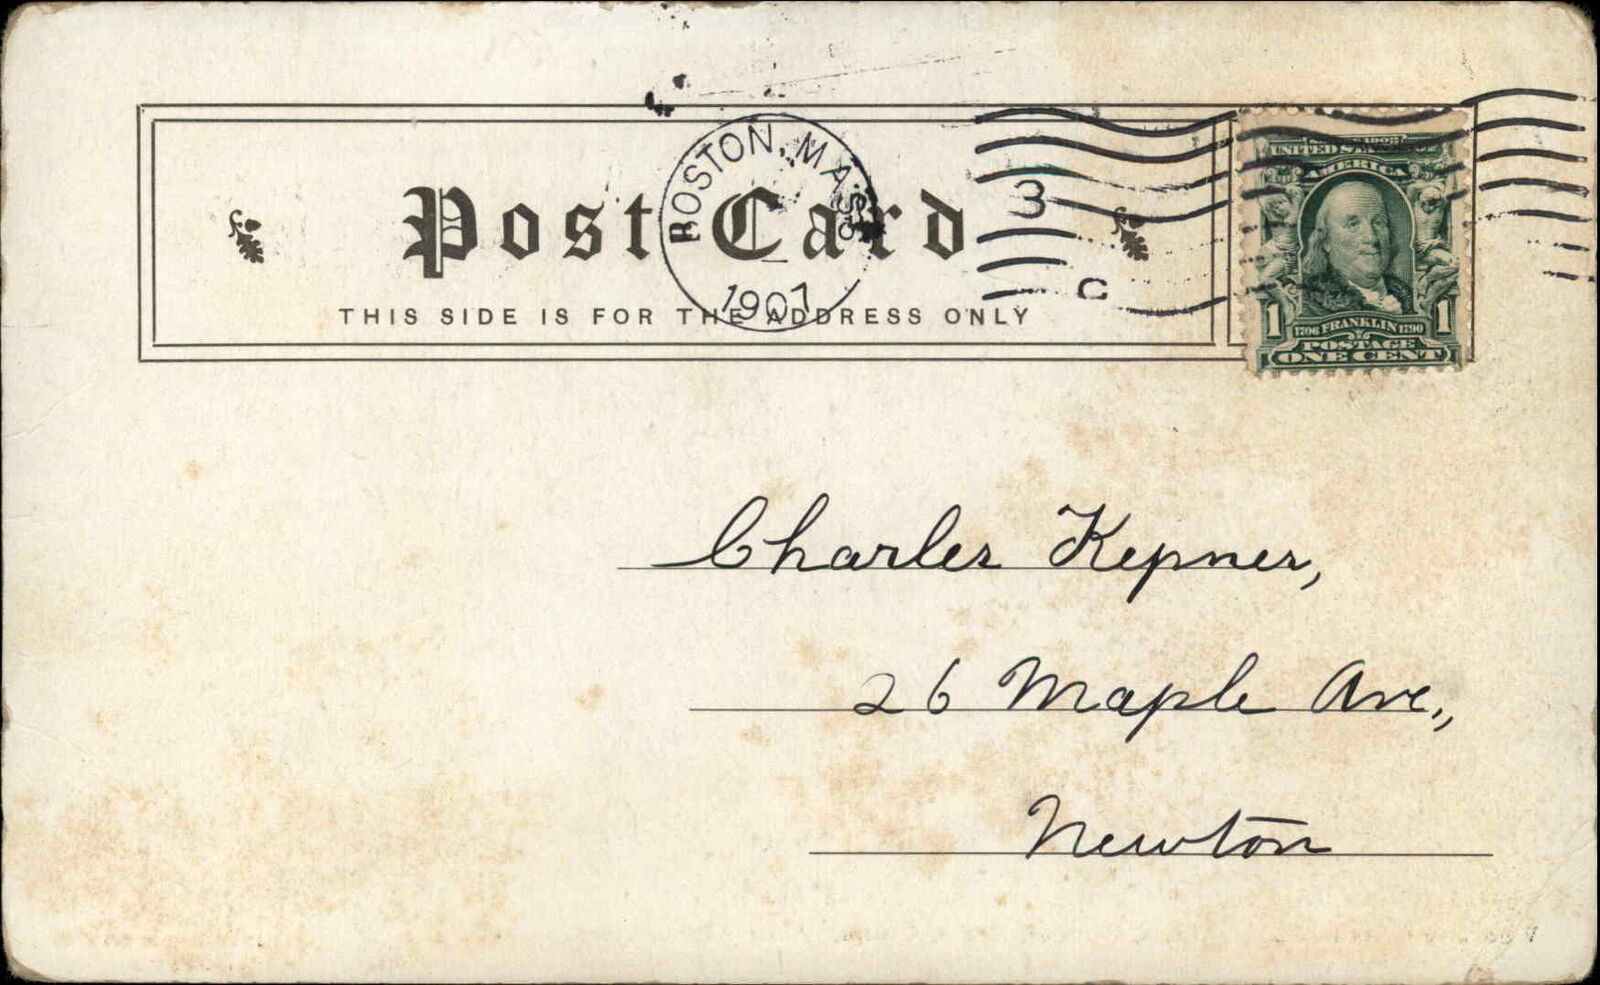 BOSTON, MASS
1907
3
C
Post Card
THIS SIDE IS FOR THE ADDRESS ONLY
UNITED STATES OF
AMERICA
1 1706 FRANKLIN 1790 1
POSTAGE
ONE CENT
Charles Kepner,
26 Maple Ave.,
Newton